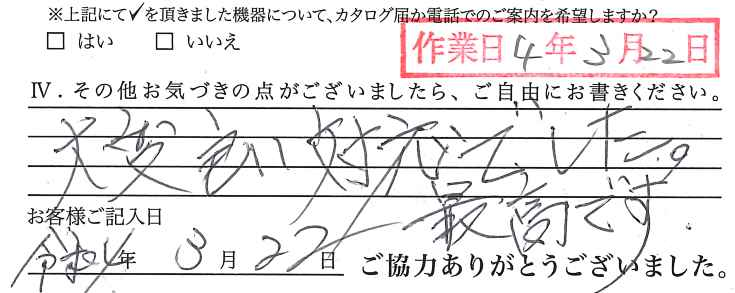 ※上記にて✓を頂きました機器について、カタログ届か電話でのご案内を希望しますか？
□ はい □ いいえ
作業日 4年 3月22日
Ⅳ．その他お気づきの点がございましたら、ご自由にお書きください。
大変良い対応でした。
最高です。
お客様ご記入日
令和4年 3月 22日
ご協力ありがとうございました。